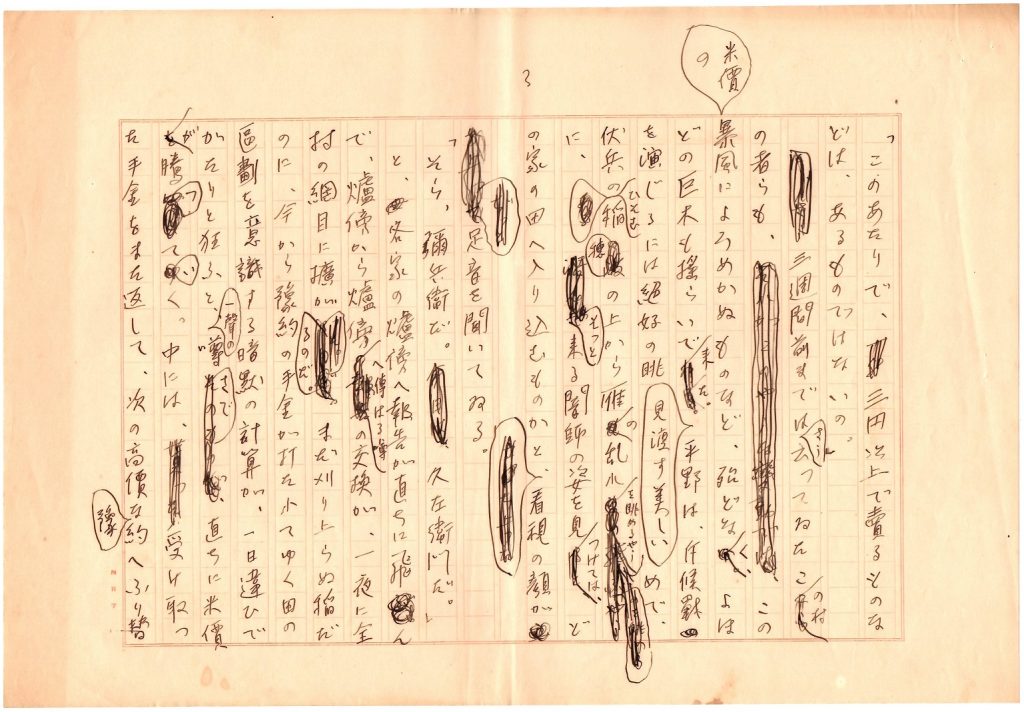 3
「このあたりで、三円以上で賣るものな
どは、あるものではないの。
三週間前まではさう云つてゐたこの村
の者らも、この
米價の
暴風によろめかぬものなど、殆どなく、よほ
どの巨木も搖らいで來た。平野は、斥候戰
を演じるには絶好の眺めで、
見渡す美しい
伏兵のひそむ稲穂の上から雁の乱れ
に、そつと來る姿を見つけては、ど
の家の田へ入り込むものかと、看視の顔が
足音を聞いてゐる。
「そら、彌兵衛だ。久左衛門だ。」
と、各家の爐傍へ報告が直ちに飛ん
で、爐傍から爐傍へ傳はる噂の交換が、一夜に全
村の網目に擴がるのだ。まだ刈り上らぬ稲だ
のに、今から豫約の手金が打たれてゆく田の
區劃を意識する暗默の計算が、一日違ひで
がたりと狂ふと、一聲の噂さで、直ちに米價
が騰つていく。中には、受け取つ
た手金をまた返して、次の高價な豫約へふり替